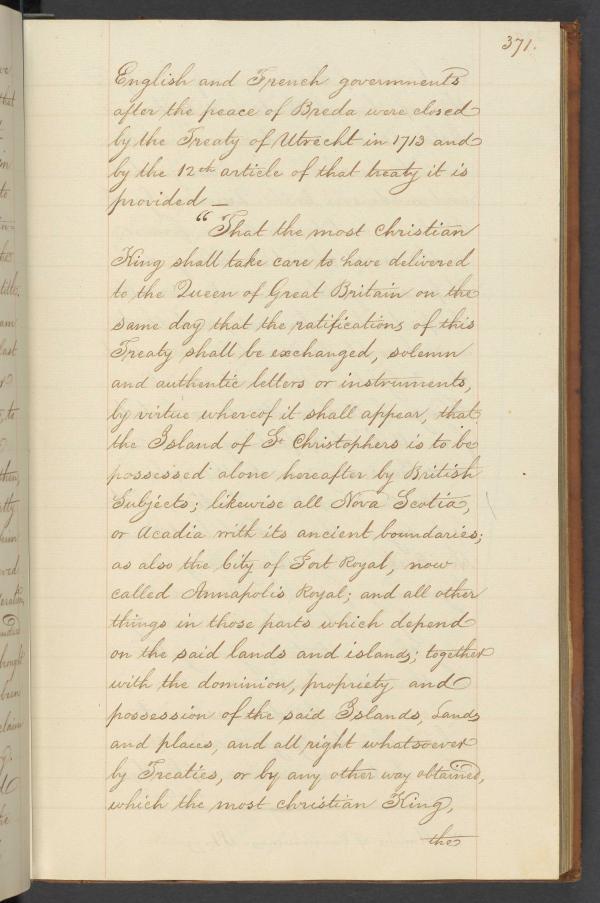 371.
English and French governments
after the peace of Breda were closed
by the Treaty of Utrecht in 1713 and
by the 12th article of that treaty it is
provided —
"That the most christian
King shall take care to have delivered
to the Queen of Great Britain on the
same day that the ratifications of this
Treaty shall be exchanged, solemn
and authentic letters or instruments,
by virtue whereof it shall appear, that
the Island of St Christophers is to be
possessed alone hereafter by British
Subjects; likewise all Nova Scotia,
or Acadia with its ancient boundaries;
as also the City of Port Royal, now
called Annapolis Royal; and all other
things in those parts which depend
on the said lands and islands; together
with the dominion, propriety and
possession of the said Islands, Lands
and places, and all right whatsoever
by Treaties, or by any other way obtained,
which the most christian King,
the